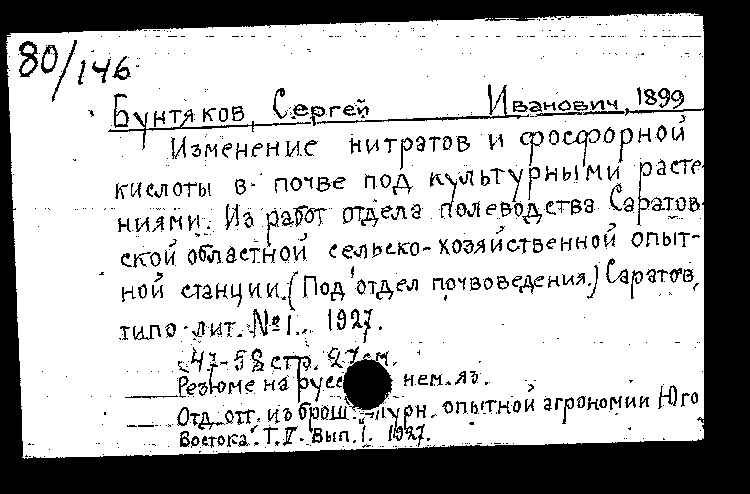 80/146
Бунтяков, Сергей Иванович, 1899
Изменение нитратов и фосфорной
кислоты в почве под культурными расте
ниями. Из работ отдела полеводства Саратов-
ской областной сельско-хозяйственной опыт-
ной станции. (Под'отдел почвоведения.) Саратов,
типо-лит. №1. 1927.
47-58 стр. 27 см.
Резюме на русс нем. яз.
Отд. отт. из брош. Журн. опытной агрономии Юго
Востока. Т. IV. Вып. I. 1927.